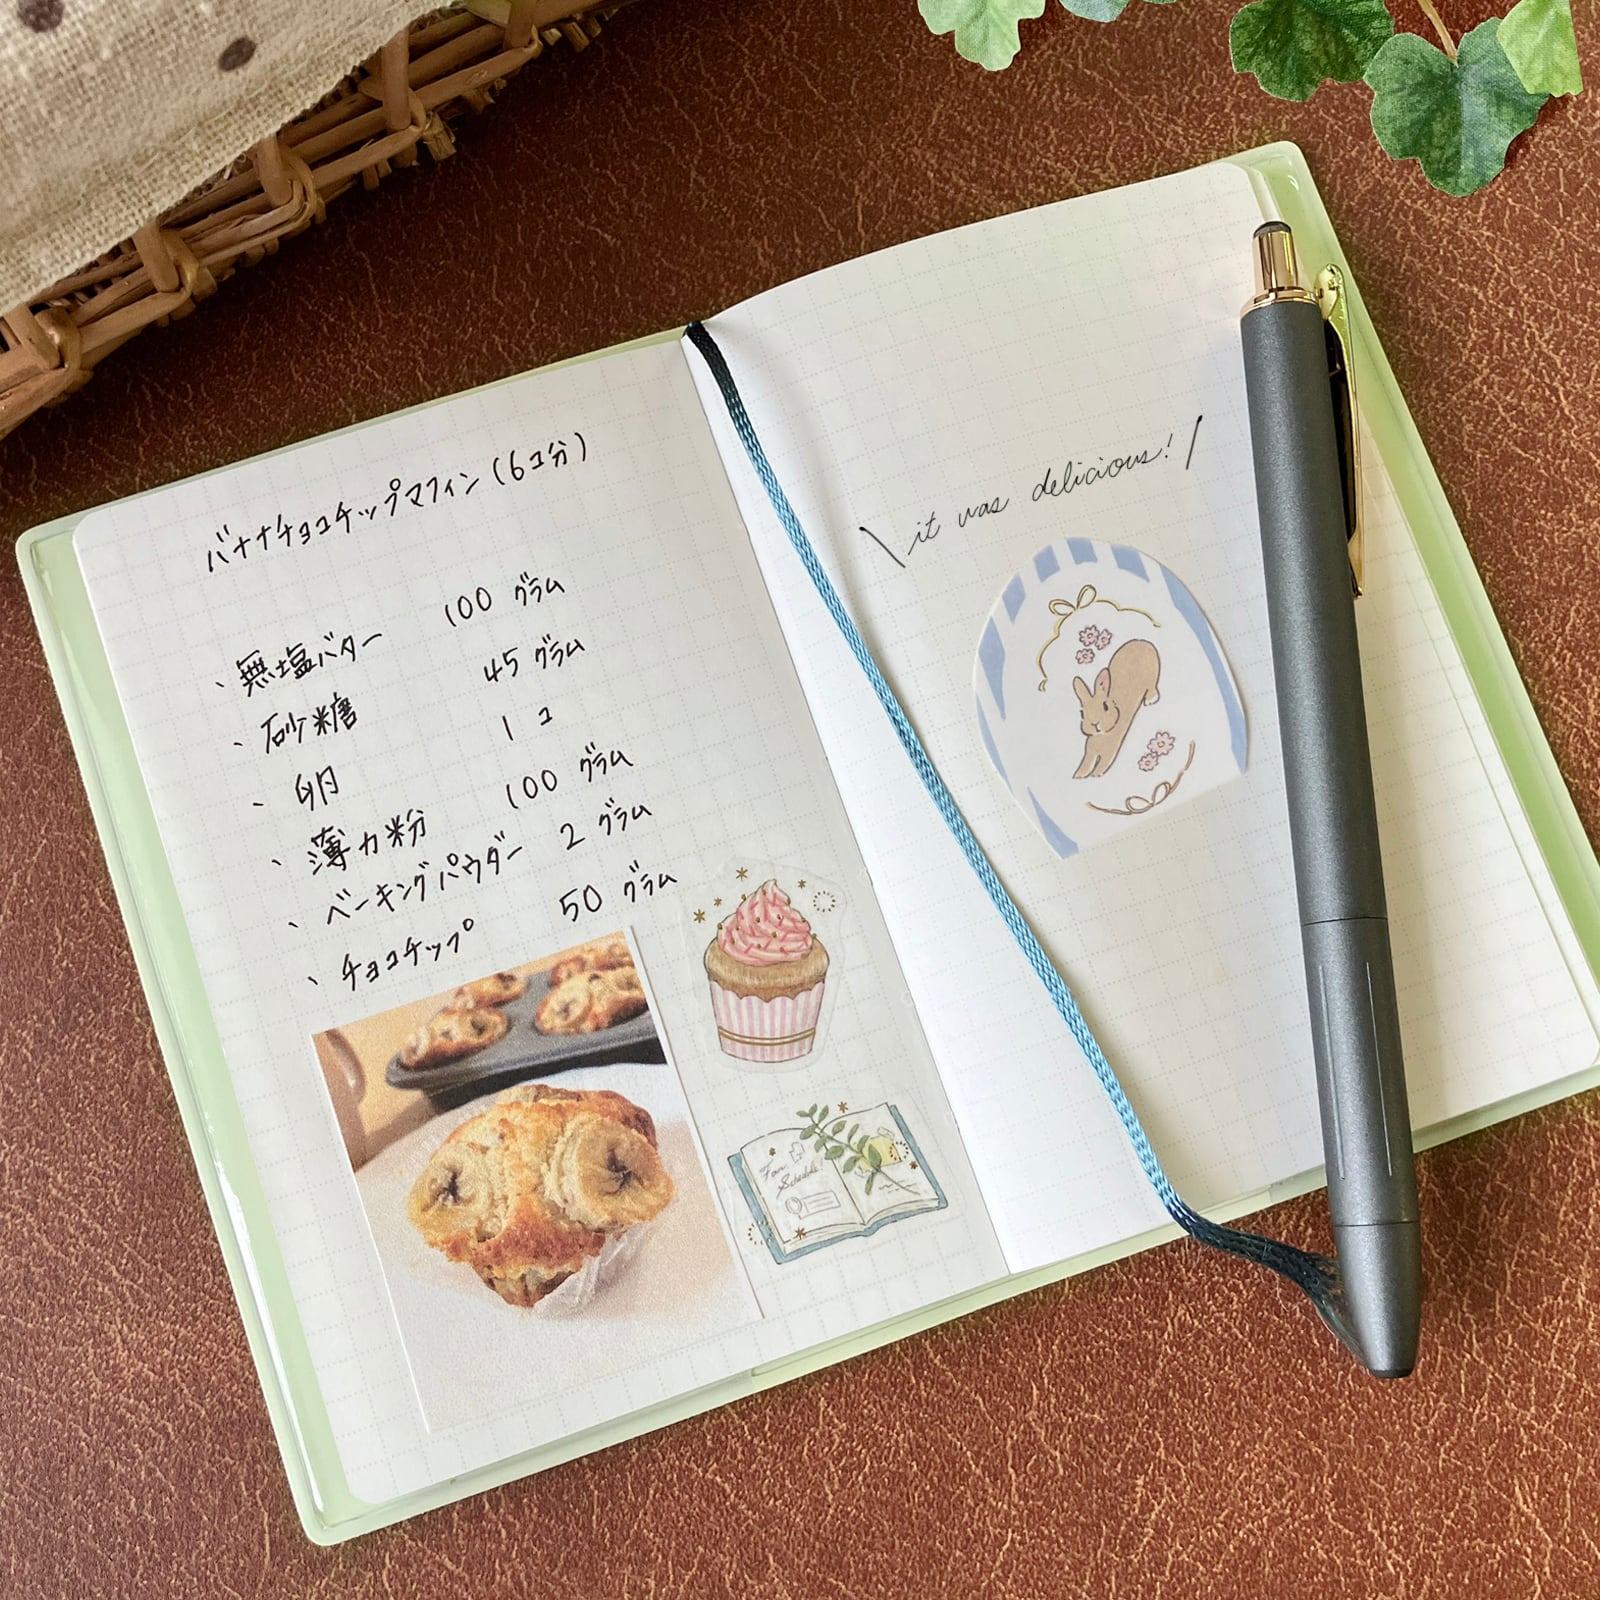 バナナチョコチップマフィン(6コ分)
、無塩バター 100 グラム
、砂糖 45 グラム
、卵 1コ
、薄力粉 100 グラム
、ベーキングパウダー 2 グラム
、チョコチップ 50 グラム
\ it was delicious! /
Fun
Schedule!